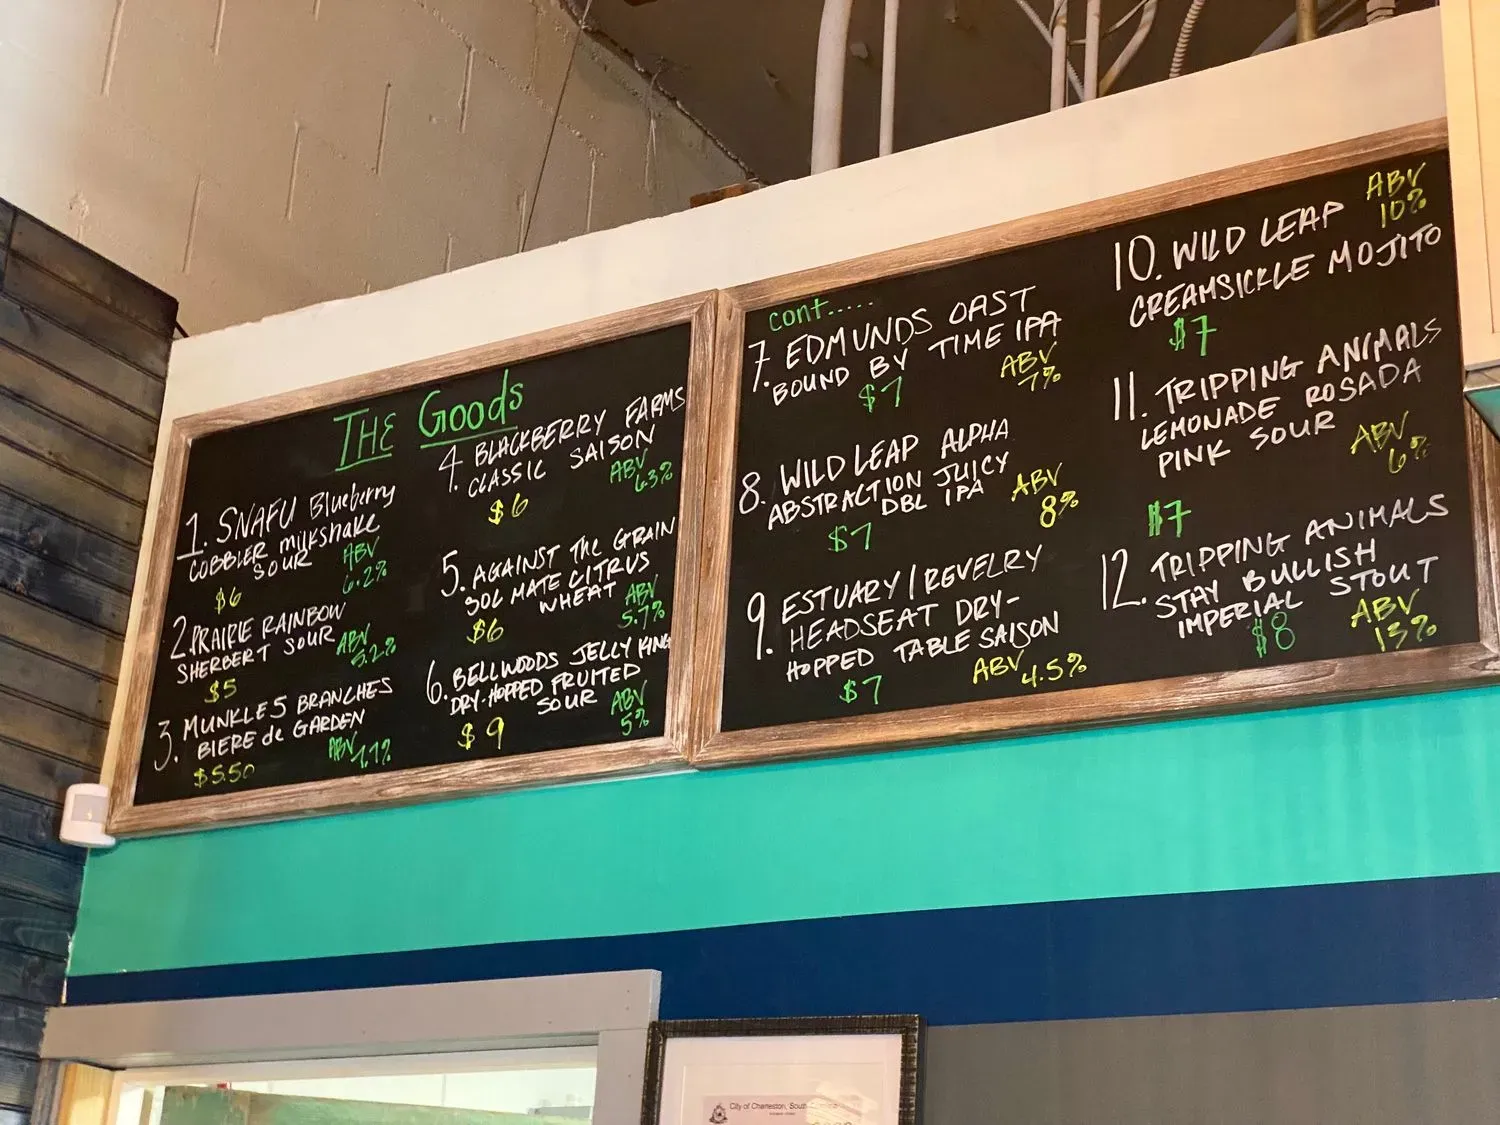 THE Goods
1. SNAFU Blueberry
COBBLER milkshake
SOUR
ABV
6.2%
$6
2. PRAIRIE RAINBOW
SHERBERT SOUR
ABV
5.2%
$5
3. MUNKLE 5 BRANCHES
BIERE de GARDEN
ABV
7.7%
$5.50
4. BLACKBERRY FARMS
CLASSIC SAISON
ABV
6.3%
$6
5. AGAINST THE GRAIN
SOL MATE CITRUS
WHEAT
ABV
5.7%
$6
6. BELLWOODS JELLY KING
DRY-HOPPED FRUITED
SOUR
ABV
5%
$9
cont.....
7. EDMUNDS OAST
BOUND BY TIME IPA
ABV
7%
$7
8. WILD LEAP ALPHA
ABSTRACTION JUICY
DBL IPA
ABV
8%
$7
9. ESTUARY/REVELRY
HEADSEAT DRY-
HOPPED TABLE SAISON
ABV 4.5%
$7
10. WILD LEAP
CREAMSICKLE MOJITO
ABV
10%
$7
11. TRIPPING ANIMALS
LEMONADE ROSADA
PINK SOUR
ABV
6%
$7
12. TRIPPING ANIMALS
STAY BULLISH
IMPERIAL STOUT
ABV
13%
$8
City of Charleston, South Carolina